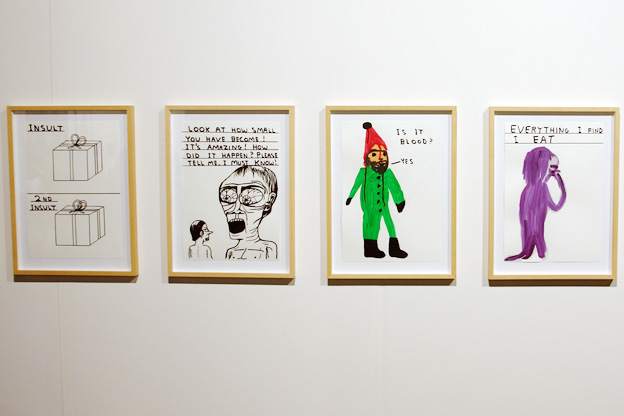 INSULT
2ND
INSULT
LOOK AT HOW SMALL
YOU HAVE BECOME!
IT'S AMAZING! HOW
DID IT HAPPEN? PLEASE
TELL ME. I MUST KNOW!
IS IT
BLOOD?
YES
EVERYTHING I FIND
I EAT